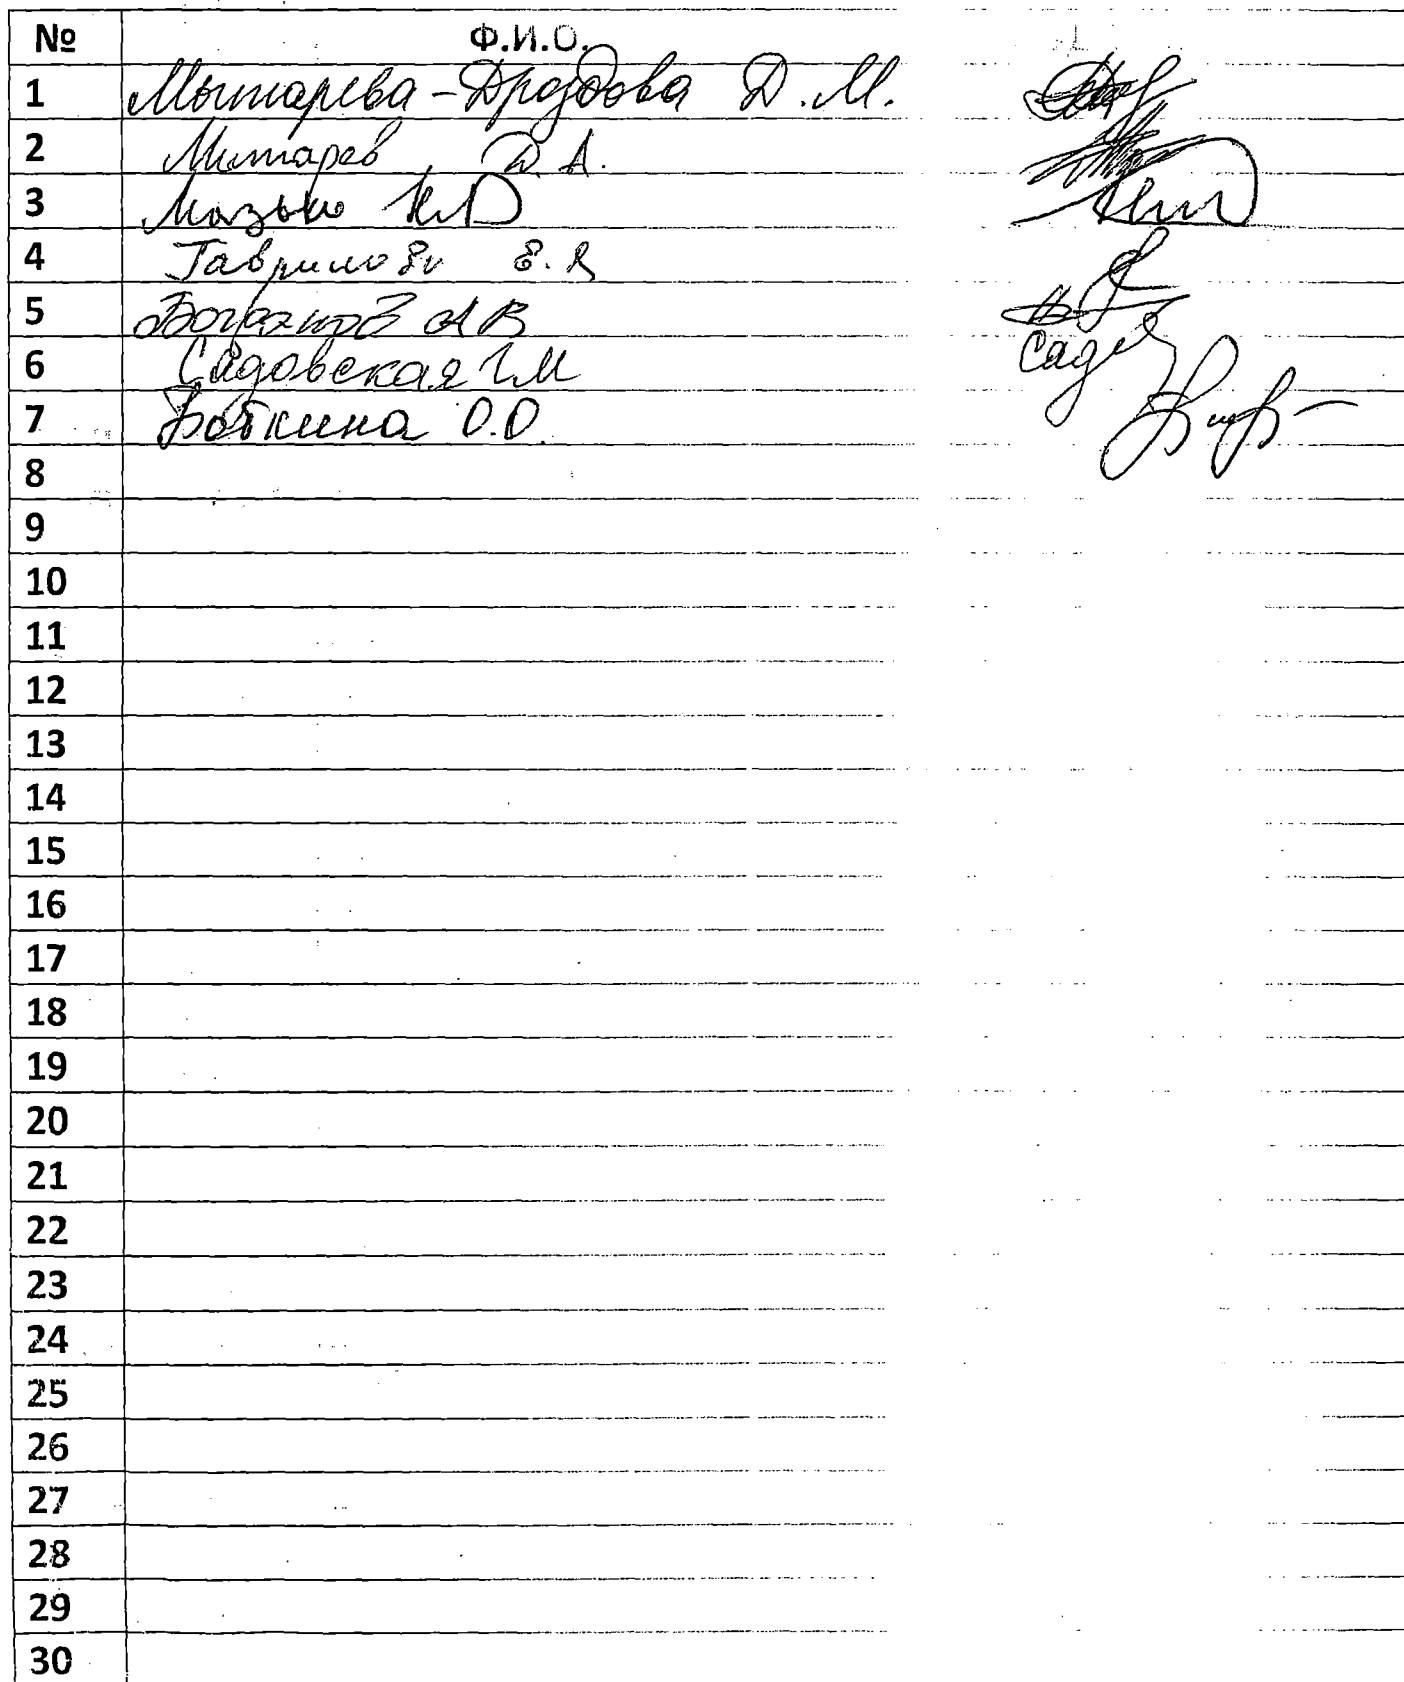 № Ф.И.О.
1 Мытарева-Дроздова Д.М.
2 Мытарев Д.А.
3 Мазько Н.Д
4 Гаврилов Е.Я
5 Богданов А В
6 Садовская Г.М
7 Боткина О.О.
8
9
10
11
12
13
14
15
16
17
18
19
20
21
22
23
24
25
26
27
28
29
30